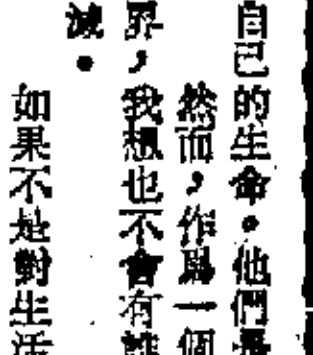 自己的生命。他們
然而，作爲一個
界，我想也不會有誰
滅。
如果不是對生活